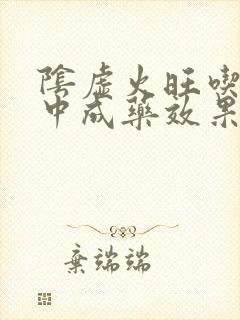 陰虛火旺喫
中成藥效果
棄端端